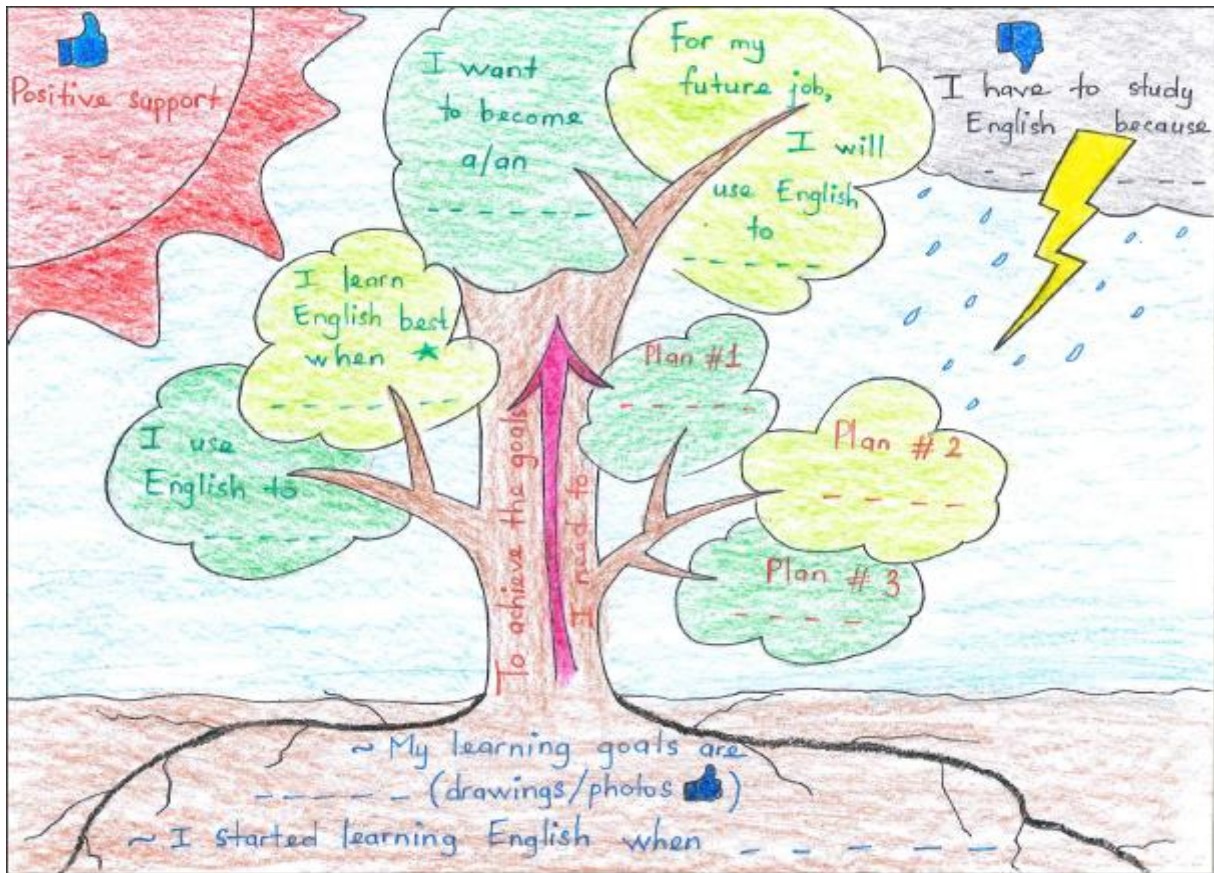 Positive support
_ _ _ _ _ _
_ _ _ _ _
I want
to become
a/an
_ _ _ _ _ _
For my
future job,
I will
use English
to
_ _ _ _ _
I have to study
English because
_ _ _ _ _ _
I learn
English best
when ★
_ _ _ _ _ _
I use
English to
_ _ _ _ _
To achieve the goals
I need to
Plan #1
_ _ _ _ _
Plan # 2
_ _ _ _
Plan # 3
_ _ _ _
~ My learning goals are
_ _ _ _ _ _ (drawings/photos 👍)
~ I started learning English when _ _ _ _ _ _